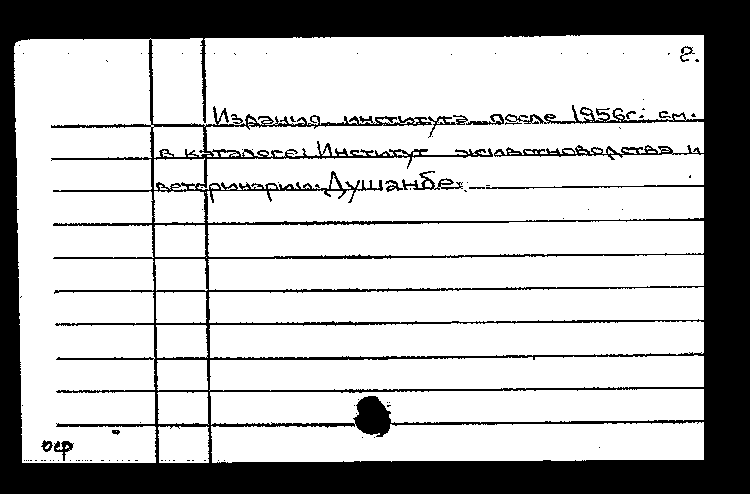 2.
Издания института после 1956г. см.
в каталоге: Институт животноводства и
ветеринарии. Душанбе.
оер